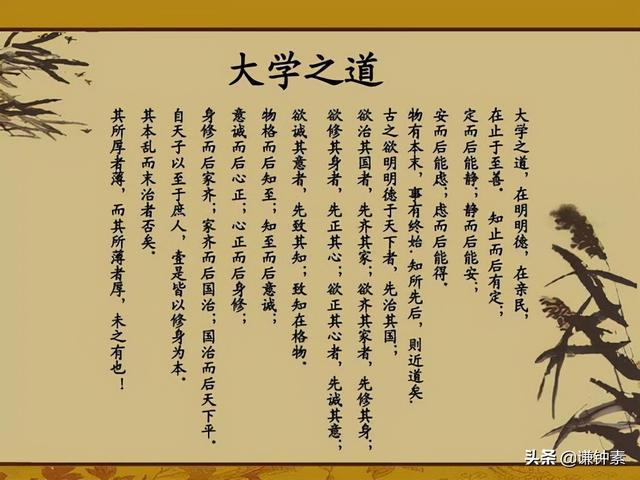 大学之道
大学之道，在明明德，在亲民，
在止于至善。知止而后有定；
定而后能静；静而后能安；
安而后能虑；虑而后能得。
物有本末，事有终始．知所先后，则近道矣．
古之欲明明德于天下者，先治其国；
欲治其国者，先齐其家；欲齐其家者，先修其身；
欲修其身者，先正其心；欲正其心者，先诚其意；
欲诚其意者，先致其知；致知在格物。
物格而后知至；知至而后意诚；
意诚而后心正；心正而后身修；
身修而后家齐；家齐而后国治；国治而后天下平。
自天子以至于庶人，壹是皆以修身为本．
其本乱而末治者否矣．
其所厚者薄，而其所薄者厚，未之有也！
头条 @谦钟素